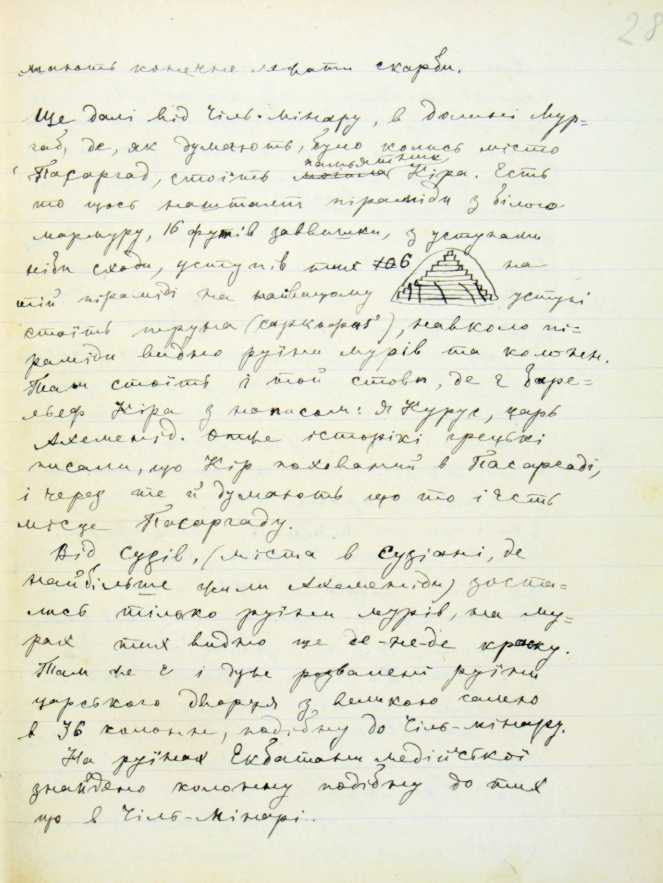 28
мають конечне ховати скарби.
Ще далі від Чіль-мінару, в долині Мур-
габ, де, як думають, було колись місто
памьятник
Пасаргад, стоіть могила Кіра. Есть
то щось нашталт піраміди з білого
мармуру, 16 футів заввишки, з уступами
ніби сходи, уступів тих 6 на
тій піраміді на найвищому уступі
стоіть труна (саркофаг), навколо пі-
раміди видно руіни мурів та колон.
Там стоіть і той стовп, де є баре-
льеф Кіра з написом: Я Курус, царь
Ахеменід. Отже історікі грецькі
писали, що Кір похований в Пасаргаді,
і через те й думають що то і есть
місце Пасаргаду.
Від Сузів, (міста в Сузіані, де
найбільше жили Ахеменіди) зоста-
лись тілько руіни мурів, на му-
рах тих видно ще де-не-де краску.
Там же є і дуже розвалені руіни
царського дворця з великою салею
в 36 колонн, подібну до Чіль-мінару.
На руінах Екбатани медійськоі
знайдено колонну подібну до тих
що в Чіль-Мінарі.